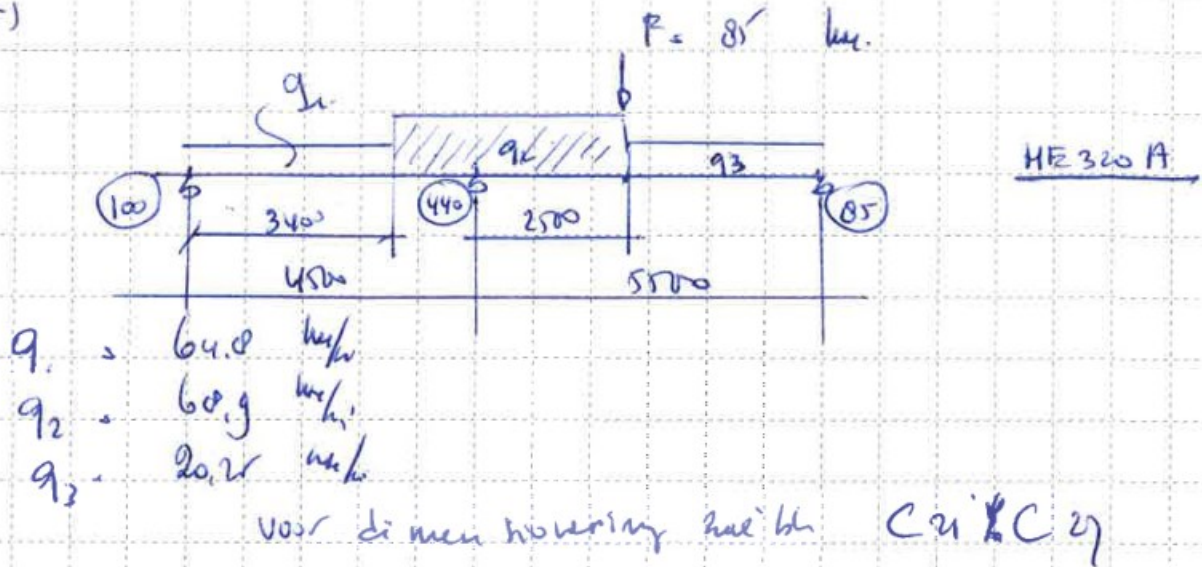 F = 85 kN.
q1
q2
q3
HE 320 A
100
440
85
3400
2500
4500
5500
q1 = 64.8 kN/m
q2 = 68,9 kN/m
q3 = 20,25 kN/m
voor dimensionering zie blz C21 C27